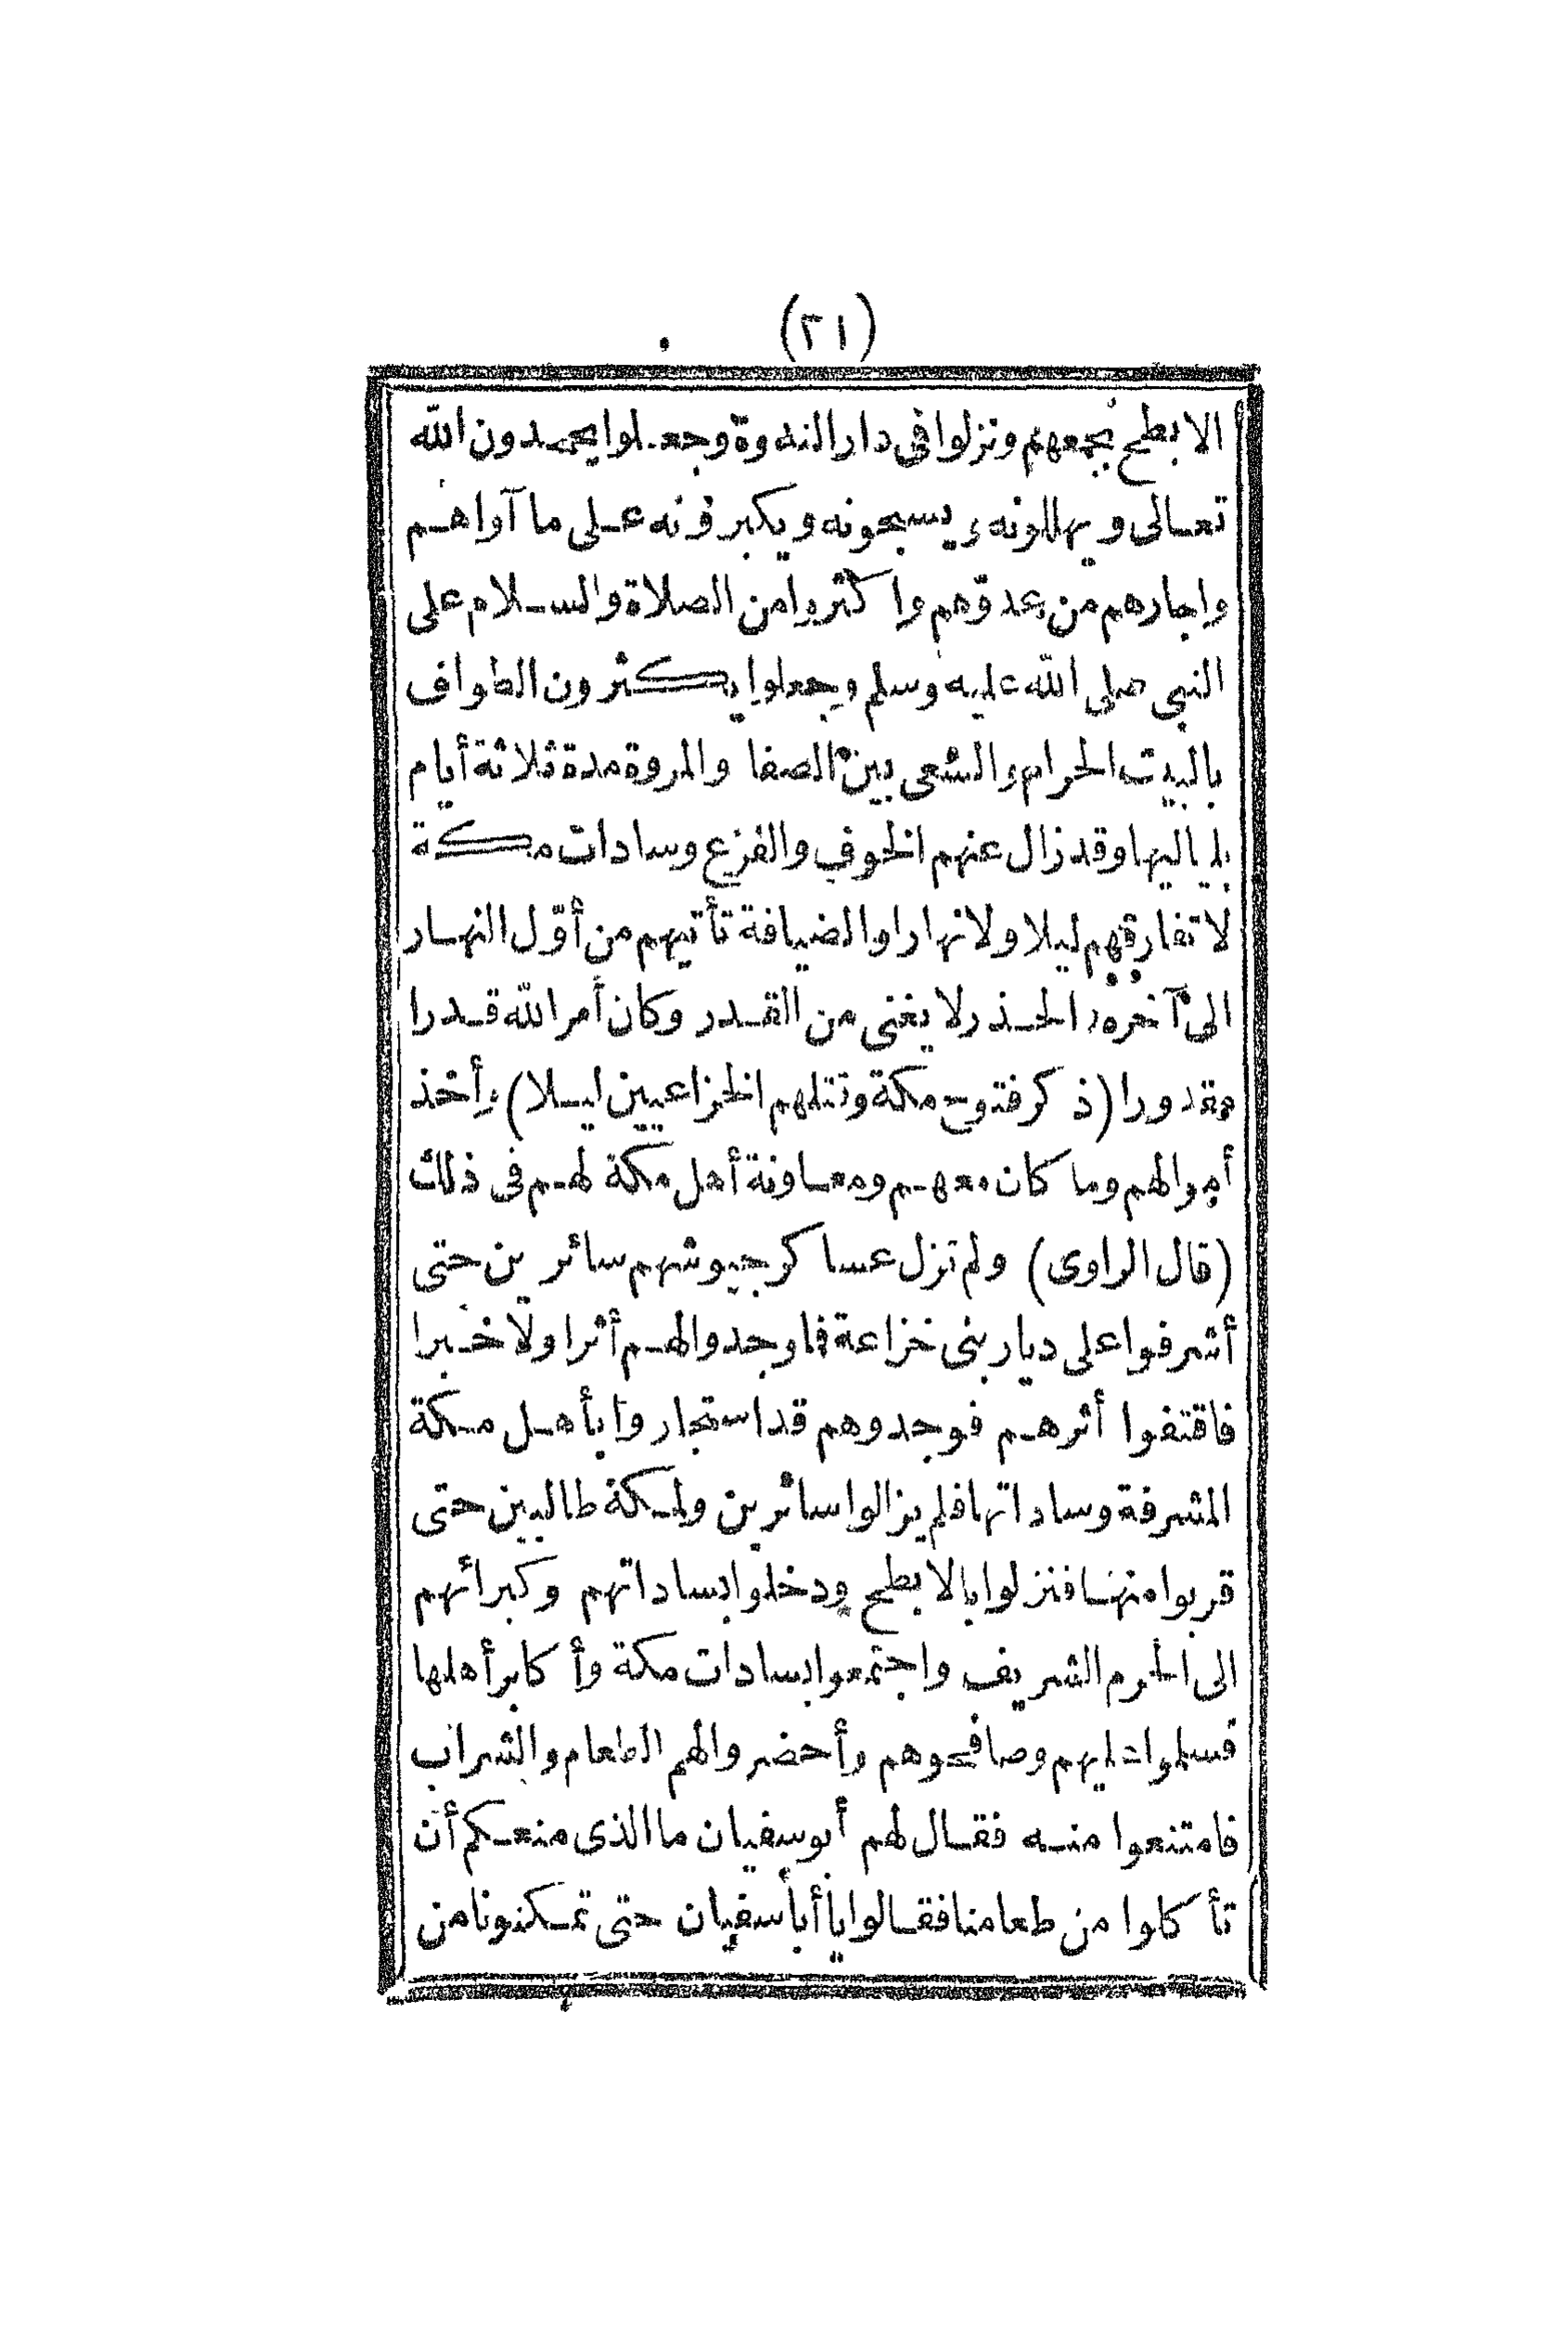 (٢١)
الابطح بجمعهم ونزلوا فى دار الندوة وجعلوا يحمدون الله
تعالى ويهللونه ويسبحونه ويكبرونه على ما آواهم
واجارهم من عدوّهم واكثروا من الصلاة والسلام على
النبى صلى الله عليه وسلم وجعلوا يكثرون الطواف
بالبيت الحرام والسعى بين الصفا والمروة مدة ثلاثة أيام
بلياليها وقد زال عنهم الخوف والفزع وسادات مكة
لا تفارقهم ليلا ولا نهارا والضيافة تأتيهم من أوّل النهار
الى آخره والحذر لا يغنى من القدر وكان أمر الله قدرا
مقدورا (ذكر فتوح مكة وقتلهم الخزاعيين ليلا) وأخذ
أموالهم وما كان معهم ومعاونة أهل مكة لهم فى ذلك
(قال الراوى) ولم تزل عساكر جيوشهم سائرين حتى
أشرفوا على ديار بنى خزاعة فما وجدوا لهم أثرا ولا خبرا
فاقتفوا أثرهم فوجدوهم قد استجاروا بأهل مكة
المشرفة وساداتها فلم يزالوا سائرين ولمكة طالبين حتى
قربوا منها فنزلوا بالابطح ودخلوا بساداتهم وكبرائهم
الى الحرم الشريف واجتمعوا بسادات مكة وأكابر أهلها
فسلموا عليهم وصافحوهم وأحضروا لهم الطعام والشراب
فامتنعوا منه فقال لهم أبو سفيان ما الذى منعكم أن
تأكلوا من طعامنا فقالوا يا أبا سفيان حتى تمكنونا من